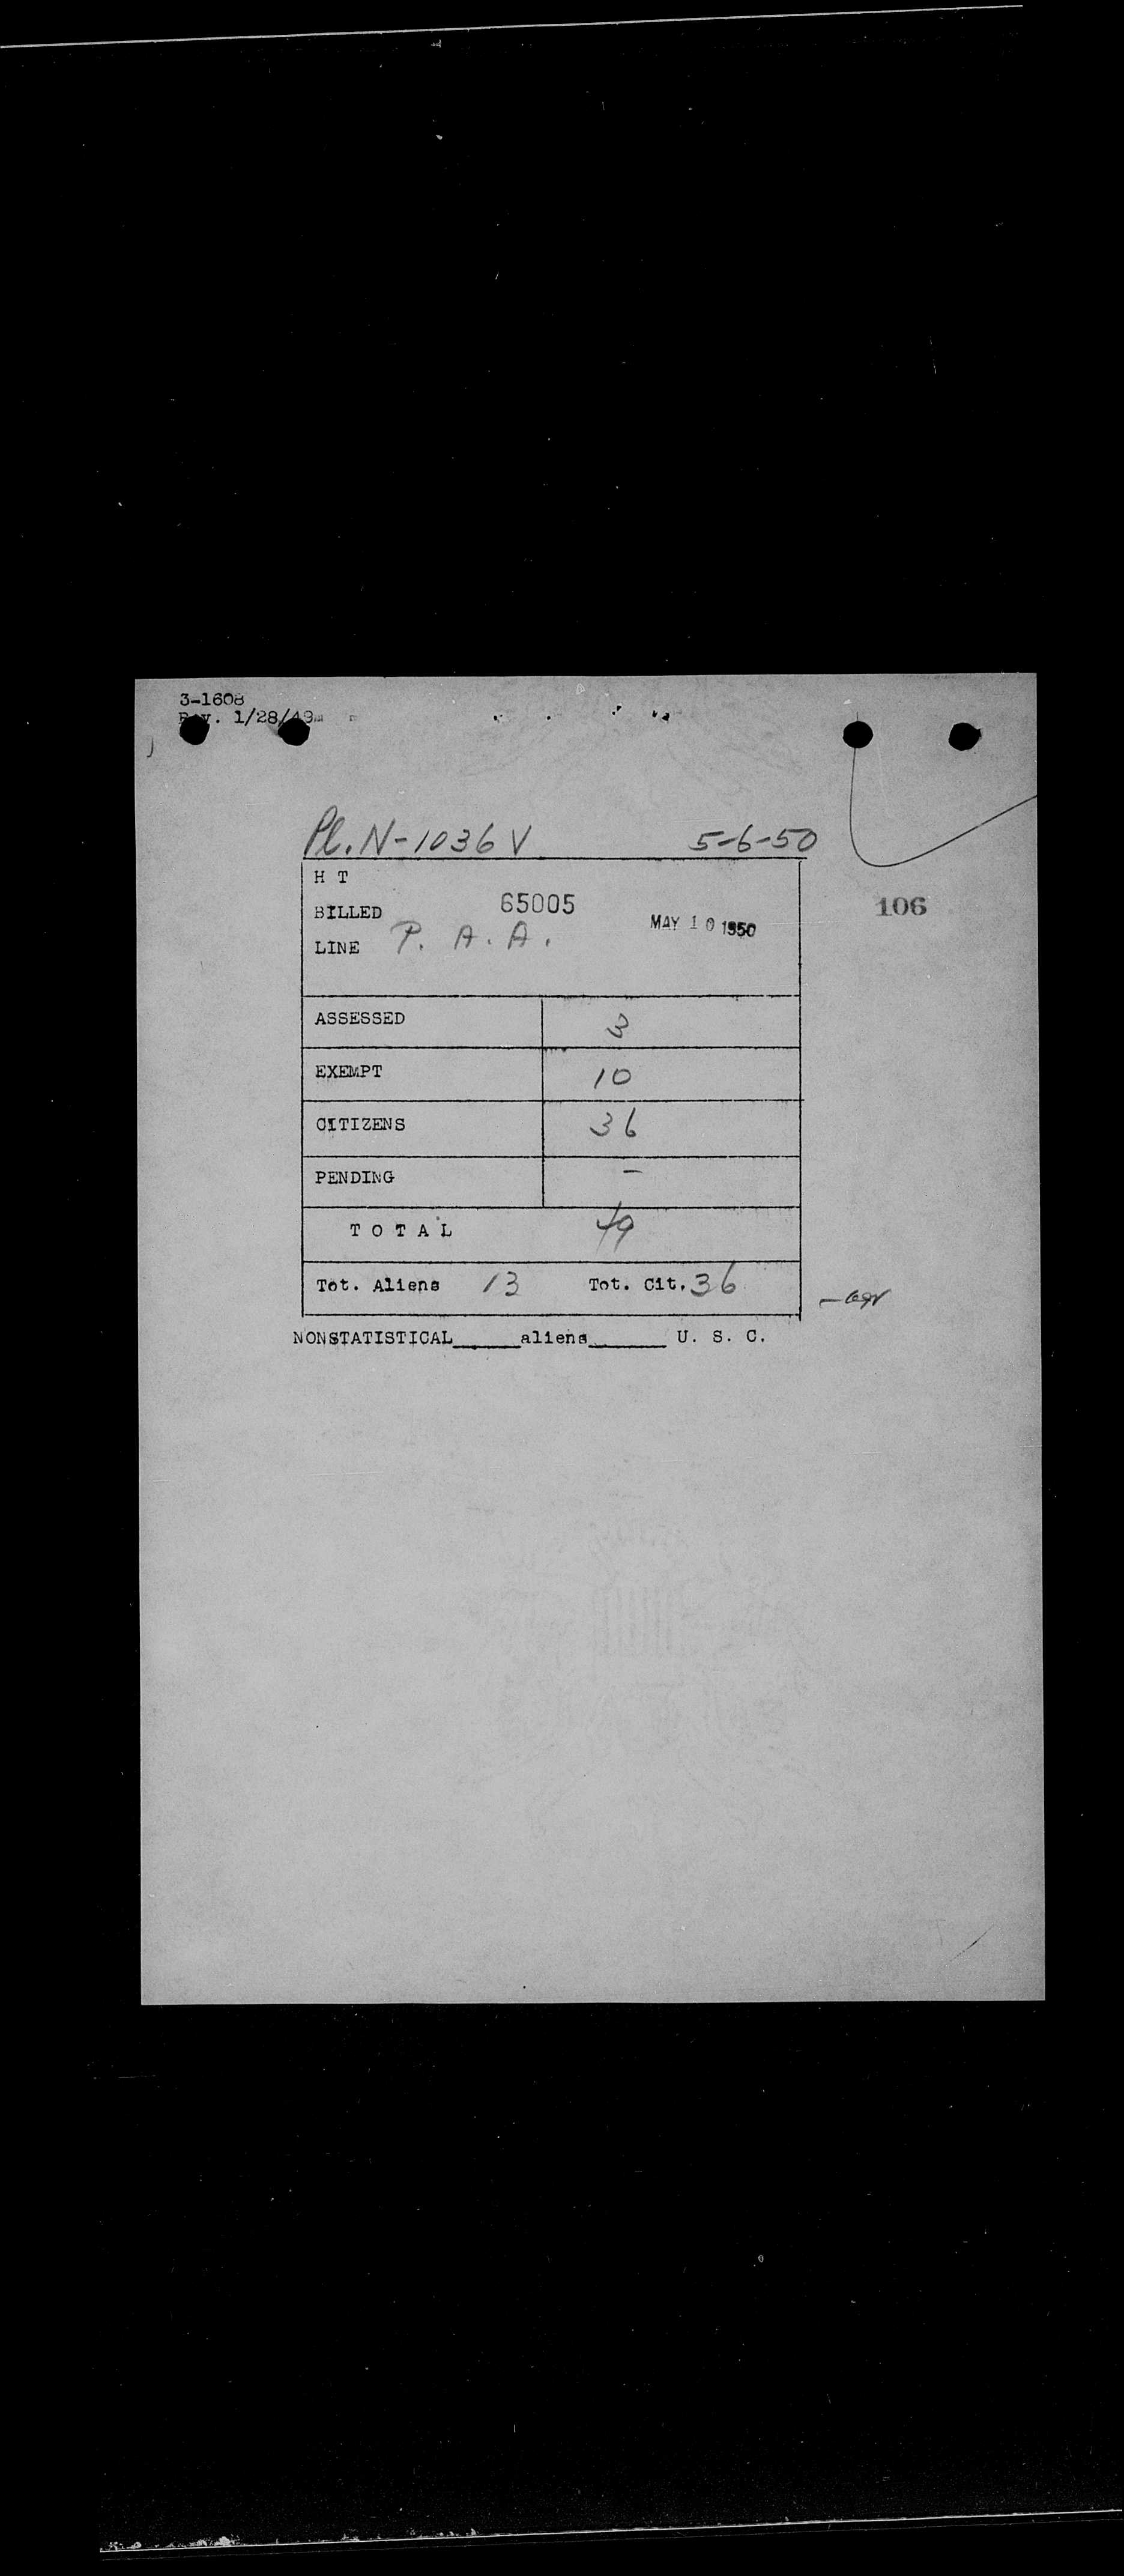 3-1608
Rev. 1/28/49
Pl. N-1036 V 5-6-50
H T
BILLED 65005 MAY 10 1950
106
LINE P. A. A.
ASSESSED 3
EXEMPT 10
CITIZENS 36
PENDING -
TOTAL 49
Tot. Aliens 13 Tot. Cit. 36
NONSTATISTICAL______aliens______ U. S. C.